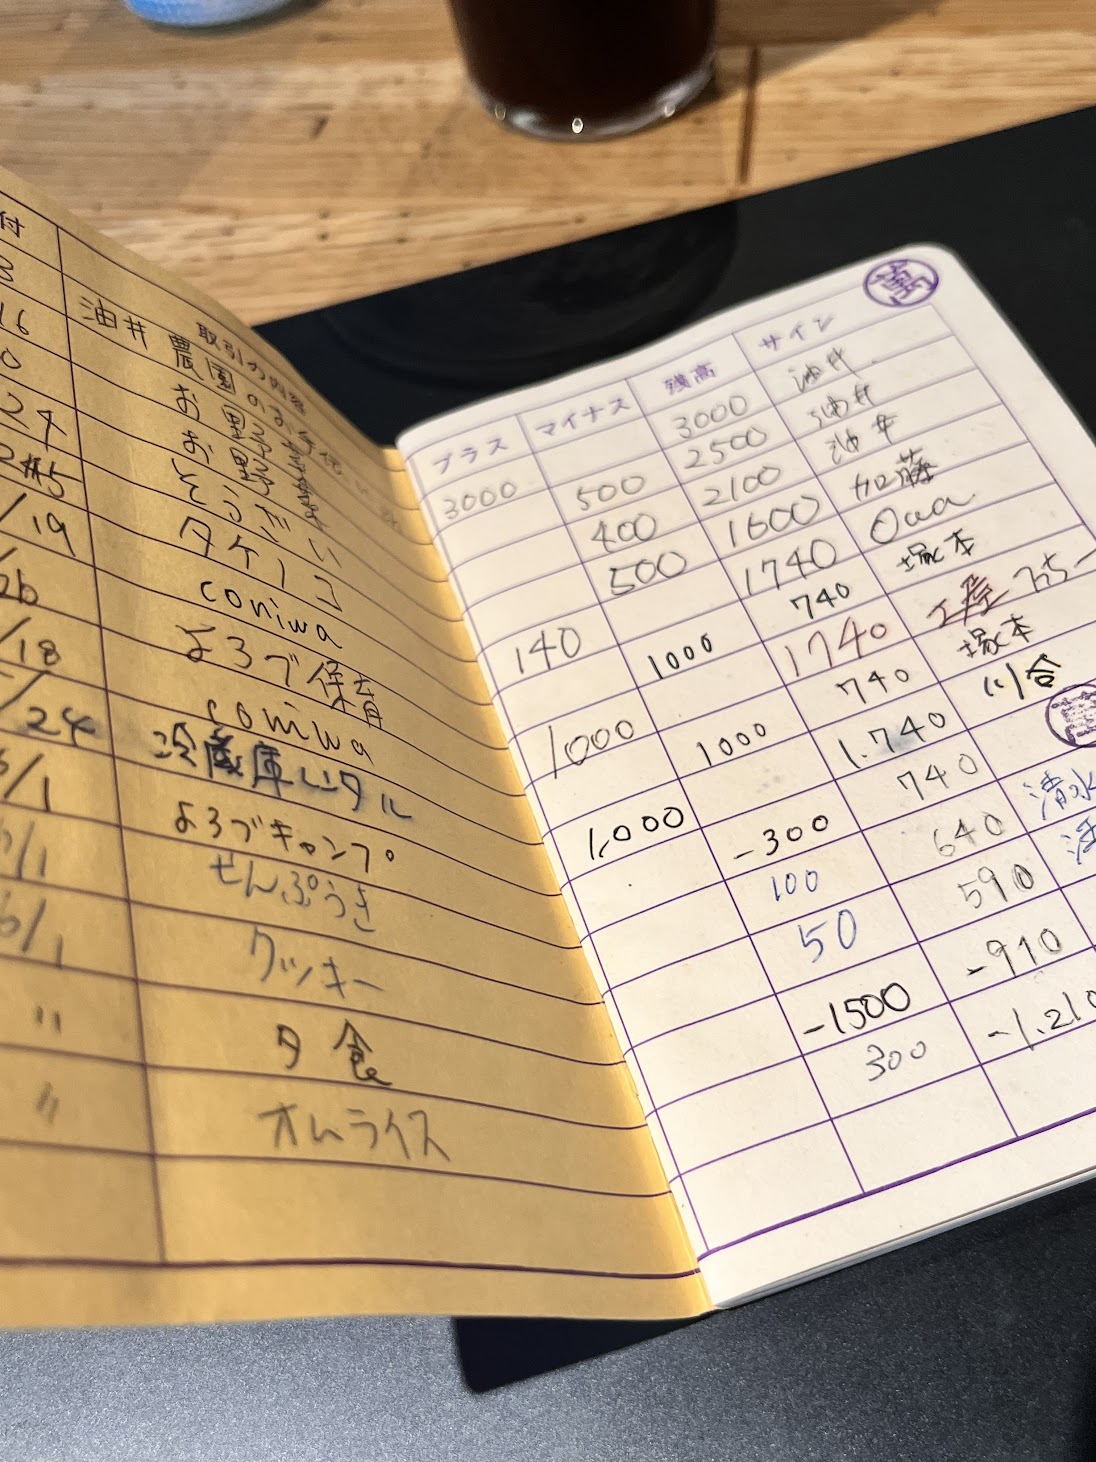 付 取引の内容 プラス マイナス 残高 サイン
油井農園のお手伝い 3000 3000 油井
16 お野菜 500 2500 油井
お野菜 400 2100 油井
24 そうざい 500 1600 加藤
タケノコ 140 1740
/19 coniwa 1000 740 塚本
/26 よろづ保育 1000 1740
/18 coniwa 1000 740 塚本
/24 冷蔵庫レンタル 1,000 1.740 川合
6/1 よろづキャンプ -300 740
/1 せんぷうき 100 640 清水
6/1 クッキー 50 590
〃 夕食 -1500 -910
〃 オムライス 300 -1.210